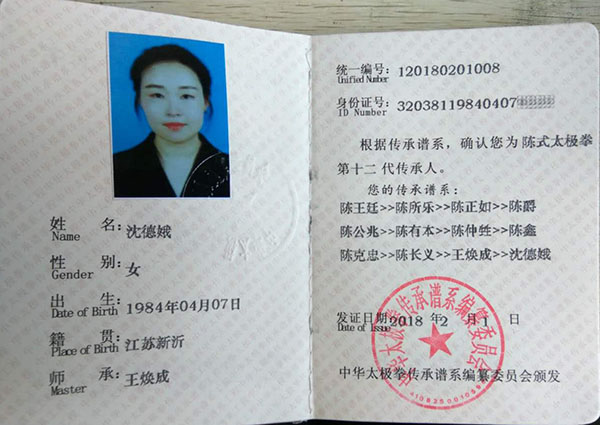 姓 名: 沈德娥
Name
性 别: 女
Gender
出 生: 1984年04月07日
Date of Birth
籍 贯: 江苏新沂
Place of Birth
师 承: 王焕成
Master
统一编号: 120180201008
Unified Number
身份证号: 32038119840407
ID Number
根据传承谱系，确认您为陈式太极拳
第十二代传承人。
您的传承谱系：
陈王廷>>陈所乐>>陈正如>>陈爵
陈公兆>>陈有本>>陈仲甡>>陈鑫
陈克忠>>陈长义>>王焕成>>沈德娥
发证日期: 2018 年 2 月 1 日
Date of Issue
中华太极拳传承谱系编纂委员会
中华太极拳传承谱系编纂委员会颁发